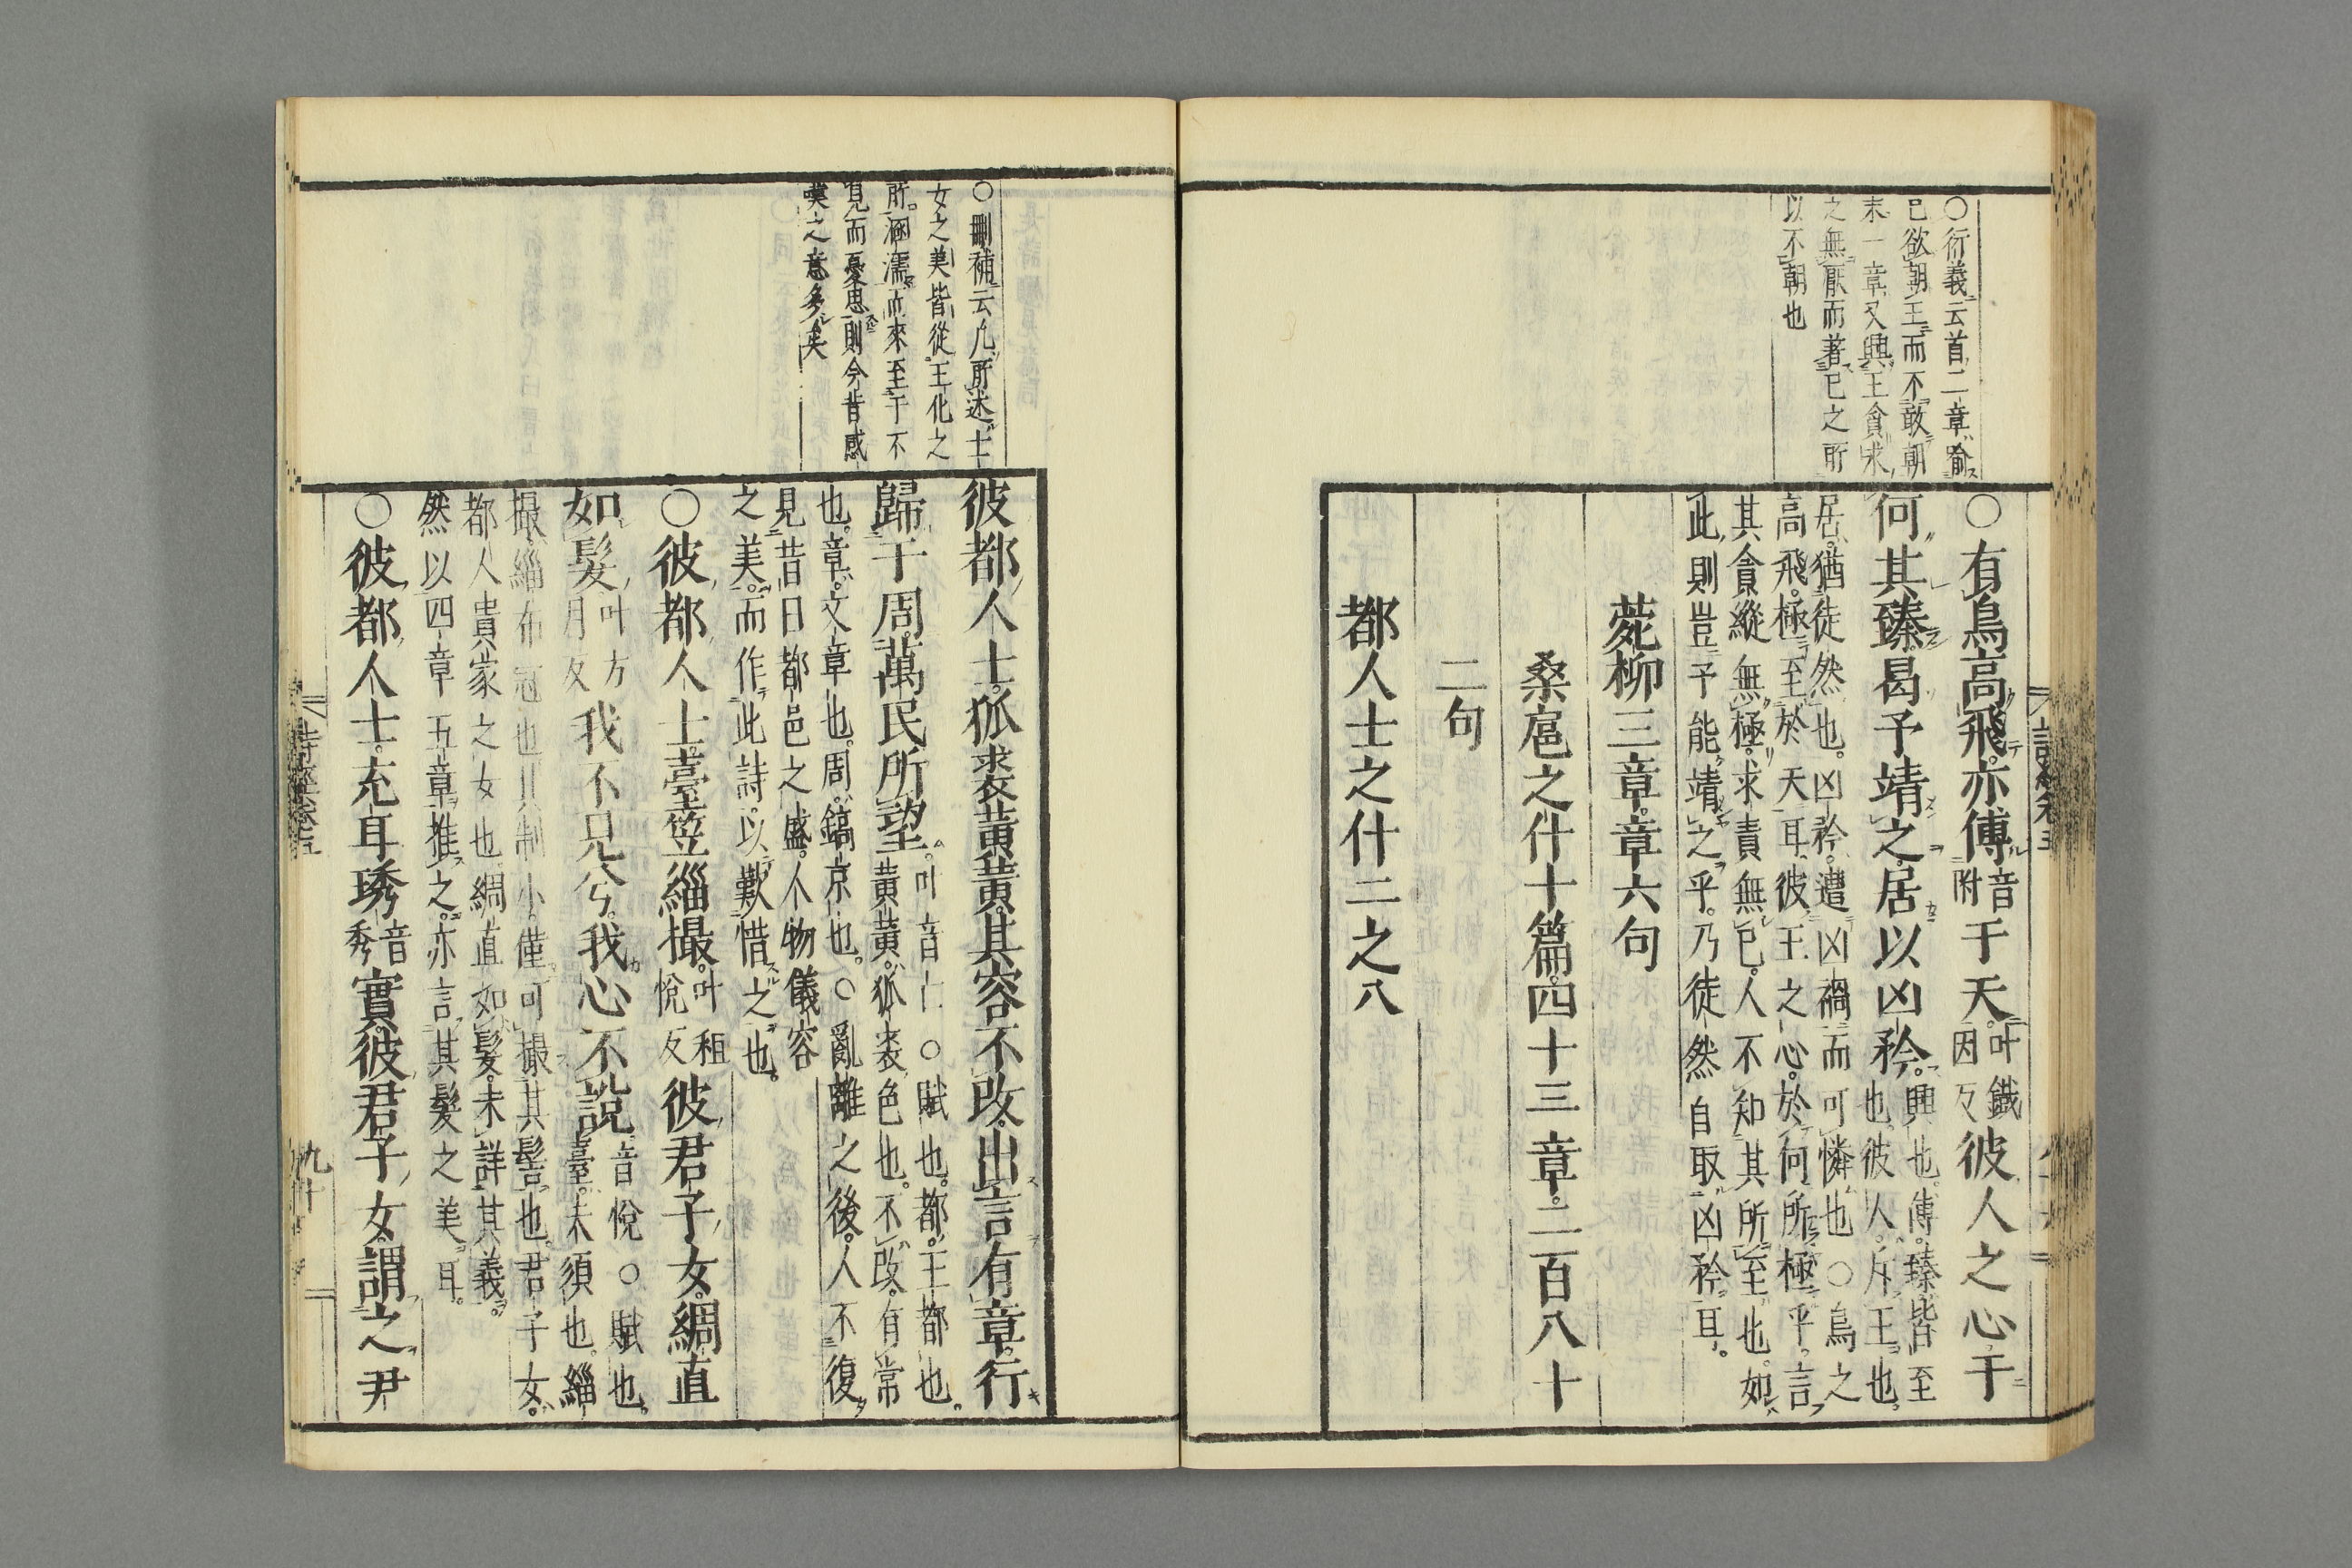 ○衍義云首二章喩
已欲朝王而不敢朝
末一章又興王貪求
之無厭而著已之所
以不朝也
○有鳥高飛亦傅音附于天叶鐵因反彼人之心于
何其臻曷予靖之居以凶矜興也傅臻皆至也彼人斥王也
居猶徒然也凶矜遭凶禍而可憐也○鳥之
高飛極至於天耳彼王之心於何所極乎言
其貪縱無極求責無已人不知其所至也如
此則豈予能靖之乎乃徒然自取凶矜耳
菀柳三章章六句
桑扈之什十篇四十三章二百八十
二句
都人士之什二之八
○刪補云凡所述士
女之美皆從王化之
所涵濡而來至于不
見而憂思則今昔感
嘆之意多矣
彼都人士狐裘黃黃其容不改出言有章行
歸于周萬民所望叶音亡○賦也都王都也黃黃狐裘色也不改有常
也章文章也周鎬京也○亂離之後人不復
見昔日都邑之盛人物儀容
之美而作此詩以歎惜之也
○彼都人士臺笠緇撮叶租悅反彼君子女綢直
如髮叶方月反我不見兮我心不說音悅○賦也臺夫須也緇
撮緇布冠也其制小僅可撮其髻也君子女
都人貴家之女也綢直如髮未詳其義
然以四章五章推之亦言其髮之美耳
○彼都人士充耳琇音秀實彼君子女謂之尹
詩經卷五
九十